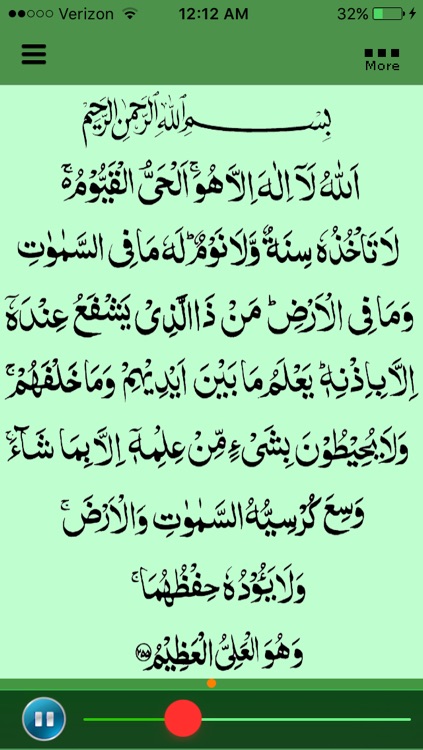 Verizon 12:12 AM 32%
More
بِسْمِ اللهِ الرَّحْمٰنِ الرَّحِيْمِ
اَللهُ لَآ اِلٰهَ اِلَّا هُوَ ۚ اَلْحَیُّ الْقَيُّوْمُ ۚ
لَا تَاْخُذُهٗ سِنَةٌ وَّلَا نَوْمٌ ؕ لَهٗ مَا فِی السَّمٰوٰتِ
وَمَا فِی الْاَرْضِ ؕ مَنْ ذَا الَّذِیْ يَشْفَعُ عِنْدَهٗۤ
اِلَّا بِاِذْنِهٖ ؕ يَعْلَمُ مَا بَيْنَ اَيْدِيْهِمْ وَمَا خَلْفَهُمْ ۚ
وَلَا يُحِيْطُوْنَ بِشَیْءٍ مِّنْ عِلْمِهٖۤ اِلَّا بِمَا شَآءَ ۚ
وَسِعَ كُرْسِيُّهُ السَّمٰوٰتِ وَالْاَرْضَ ۚ
وَلَا يَـُٔوْدُهٗ حِفْظُهُمَا ۚ
وَهُوَ الْعَلِیُّ الْعَظِيْمُ ۝۲۵۵